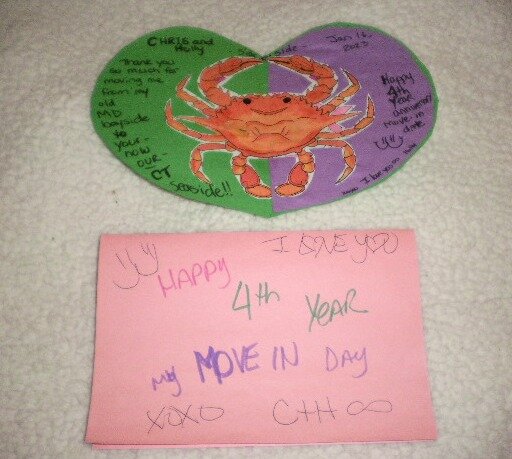 CHRIS and
Holly
Thank you
so much for
moving me
from my
old
MD
bayside
to
your -
now
OUR -
CT
seaside!!
Jan 16
2023
Happy
4th
Year
anniversary
Move in
date
I love you
HAPPY
I LOVE YOU
4th
YEAR
my MOVE IN DAY
XOXO C+H ∞